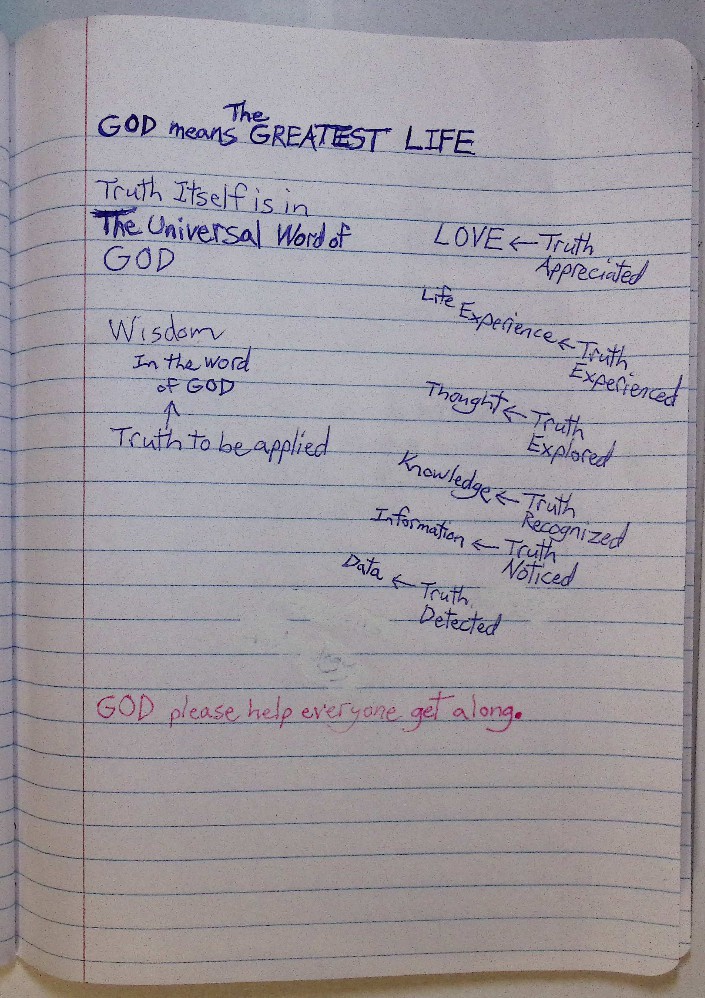 The
GOD means GREATEST LIFE
Truth Itself is in
The Universal Word of
GOD
Wisdom
In the word
of GOD
↑
Truth to be applied
LOVE ← Truth
Appreciated
Life Experience ← Truth
Experienced
Thought ← Truth
Explored
Knowledge ← Truth
Recognized
Information ← Truth
Noticed
Data ← Truth
Detected
GOD please help everyone get along.